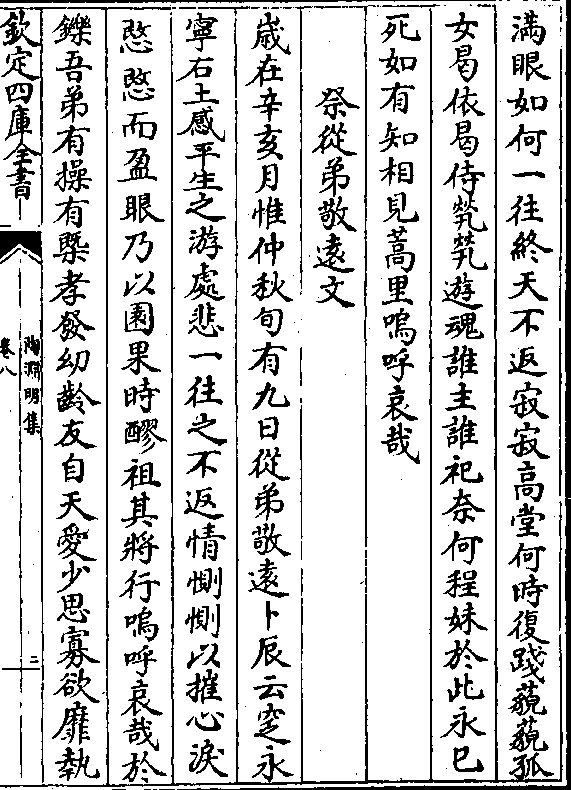 滿眼如何一往終天不返寂寂高堂何時復踐藐藐孤
女曷依曷侍煢煢遊魂誰主誰祀奈何程妹於此永已
死如有知相見蒿里嗚呼哀哉
祭從弟敬遠文
歲在辛亥月惟仲秋旬有九日從弟敬遠卜辰云窆永
寧右土感平生之游處悲一往之不返情惻惻以摧心淚
愍愍而盈眼乃以園果時醪祖其將行嗚呼哀哉於
鑠吾弟有操有槩孝發幼齡友自天愛少思寡欲靡執
欽定四庫全書
陶淵明集
卷八
二